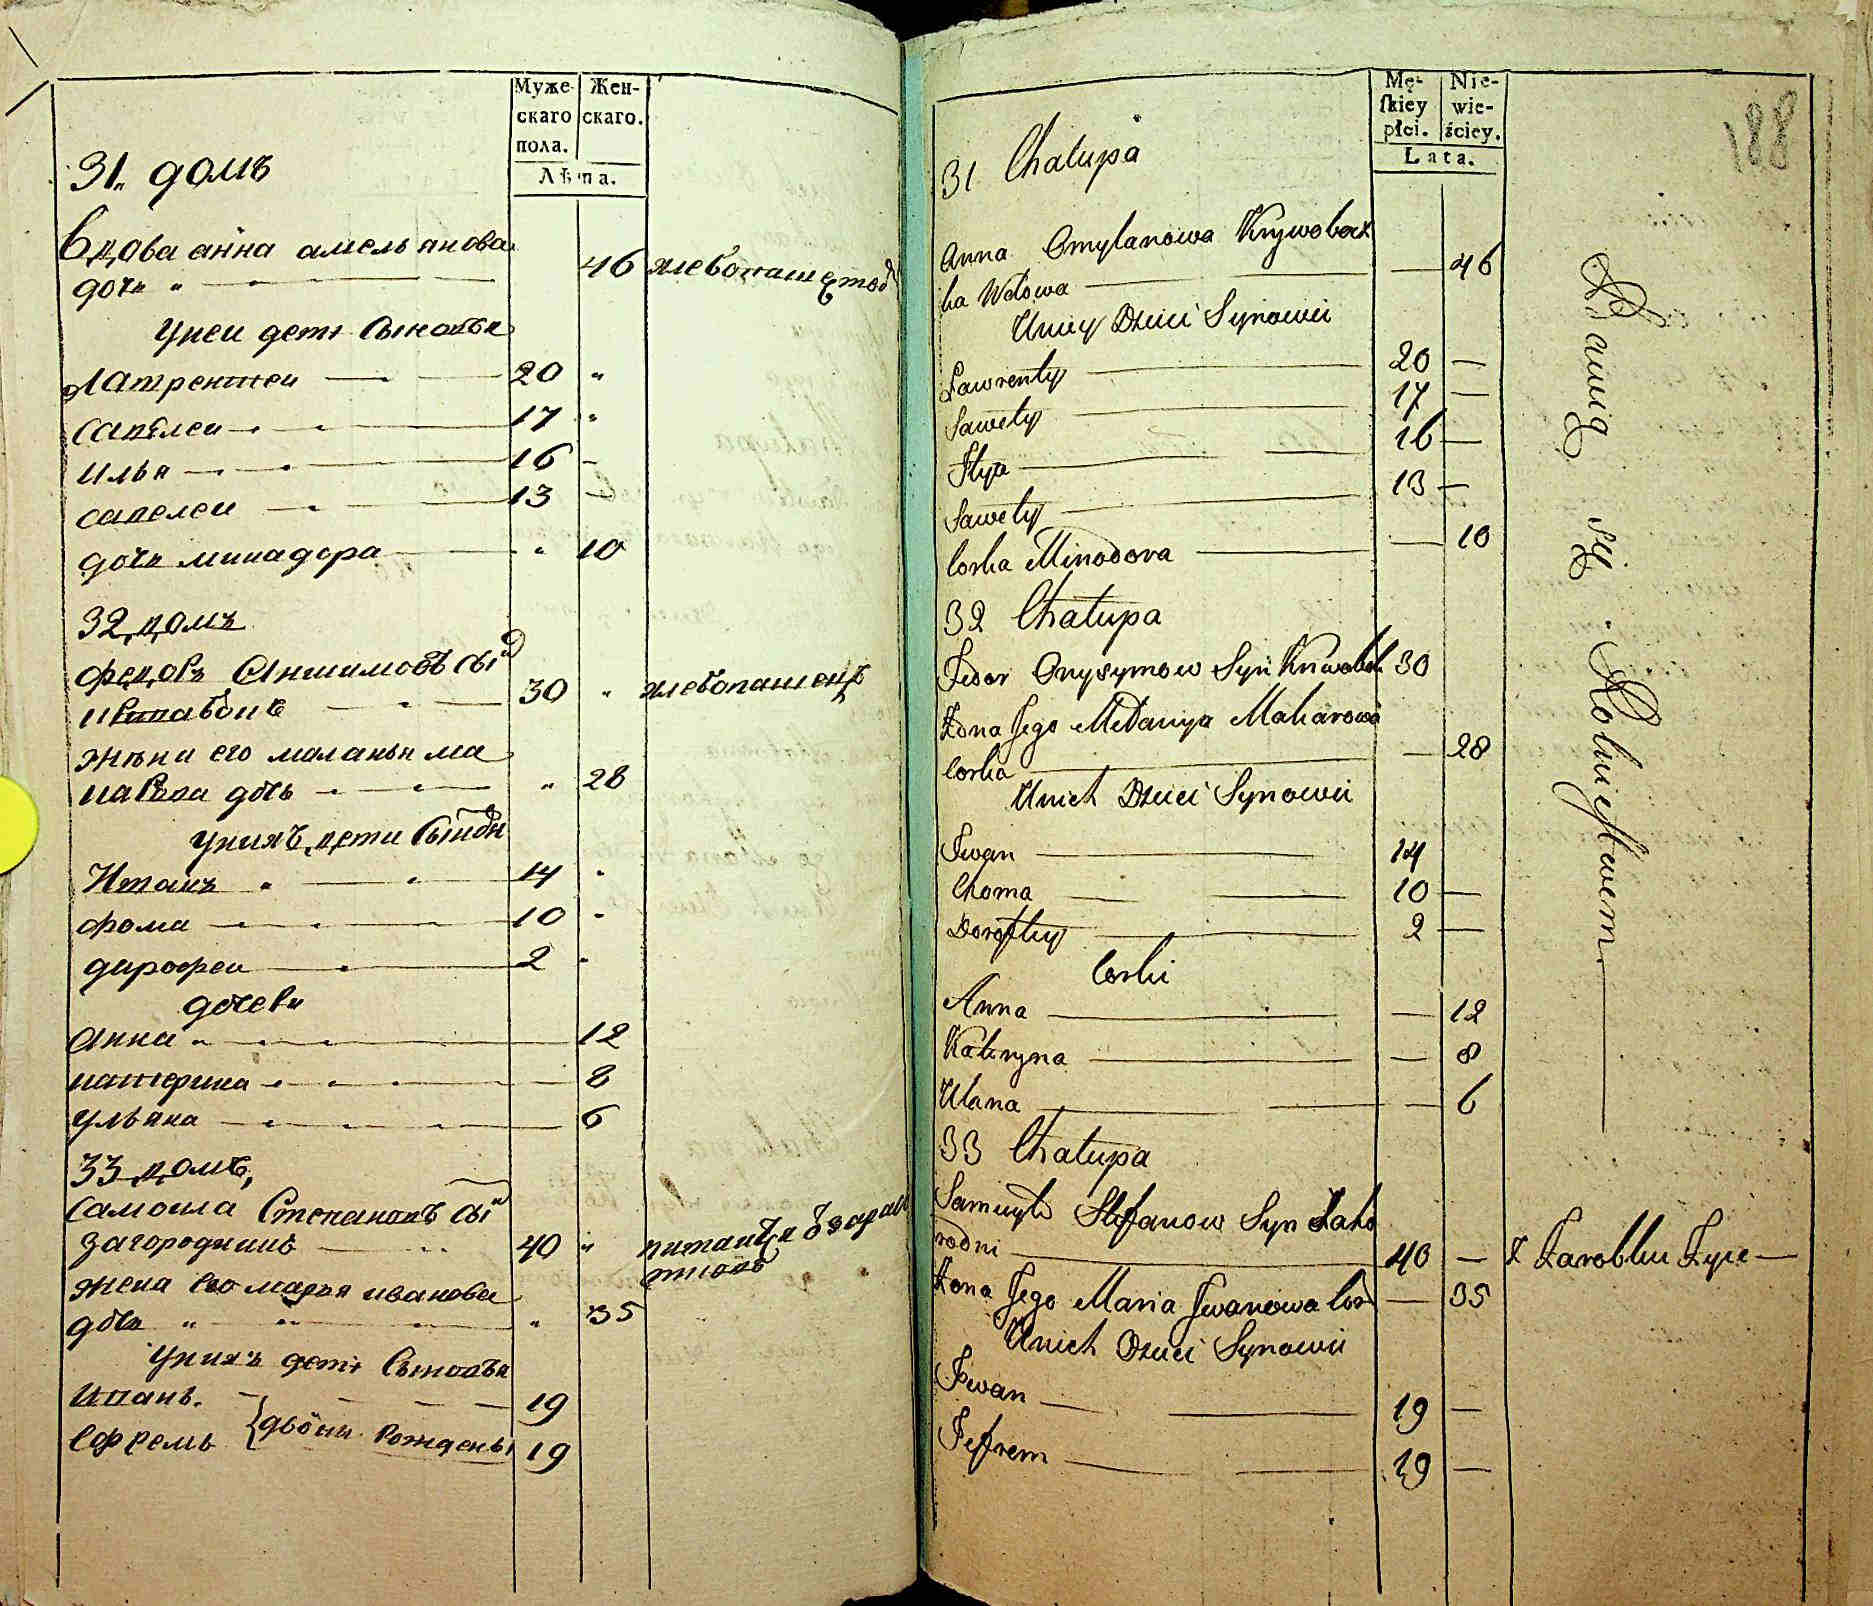 Муже-
скаго
пола.
Жен-
скаго.
Лѣта.
31. домъ
Вдова анна амельянова
дочь 46 хлебопашество
У неи дети Сыновья
Лаврентеи 20
савелеи 17
илья 16
савелеи 13
дочь минадора 10
32 домъ
федоръ Анисимовъ сынъ
30 хлебопашецъ
жена его маланья ма
карова дочь 28
У нихъ дети Сыновья
Иванъ 14
фома 10
дарофеи 2
дочери
анна 12
катерина 8
ульяна 6
33 домъ
самоила Степановъ сынъ
загороднии 40 питаитца
жена его марья иванова
дочь 35
У нихъ дети Сыновья
Иванъ. 19
Ефремъ двоини рождены 19
Mę-
skiey
płci.
Nie-
wie-
ściey.
Lata.
188
31 Chalupa
Anna Omylanowa Krywobocz
ka Wdowa 46
U niey Dzieci Synowie
Lawrenty 20
Sawely 17
Ilya 16
Sawely 13
Corka Minodora 10
32 Chalupa
Fedor Onysymow Syn 30
Zona Jego Melanija Makarowa
Corka 28
U nich Dzieci Synowie
Iwan 14
Choma 10
Doroftey 2
Corki
Anna 12
Kateryna 8
Ulana 6
33 Chalupa
Samuylo Stefanow Syn Zaho
rodni 40 Z Zarobku Zyie
Zona Jego Maria Iwanowa Cor 35
U nich Dzieci Synowie
Iwan 19
Jefrem 19
Bawią się Rolnictwem